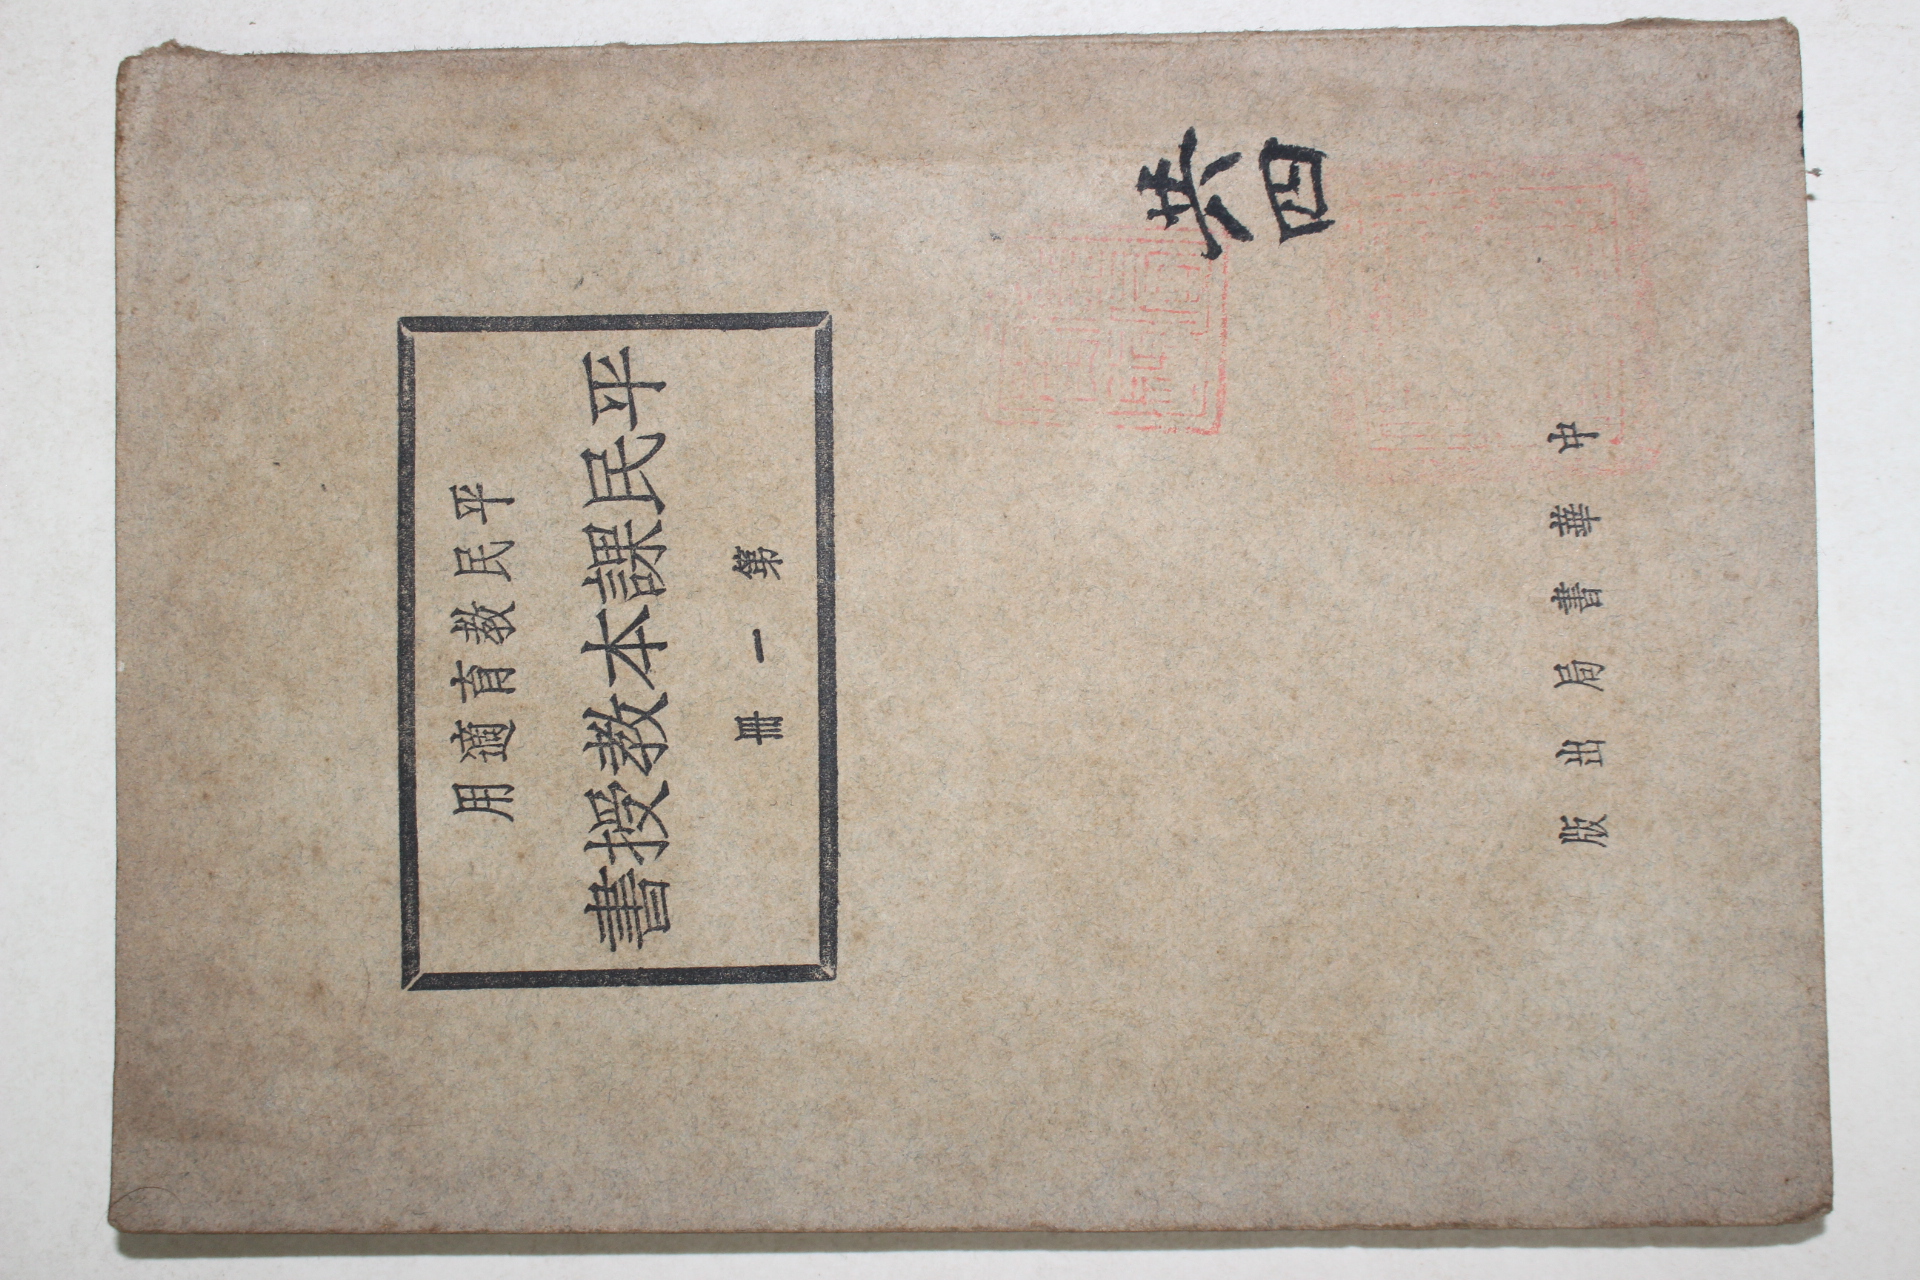 平民教育適用
平民課本教授書
第一冊
共四
中華書局出版